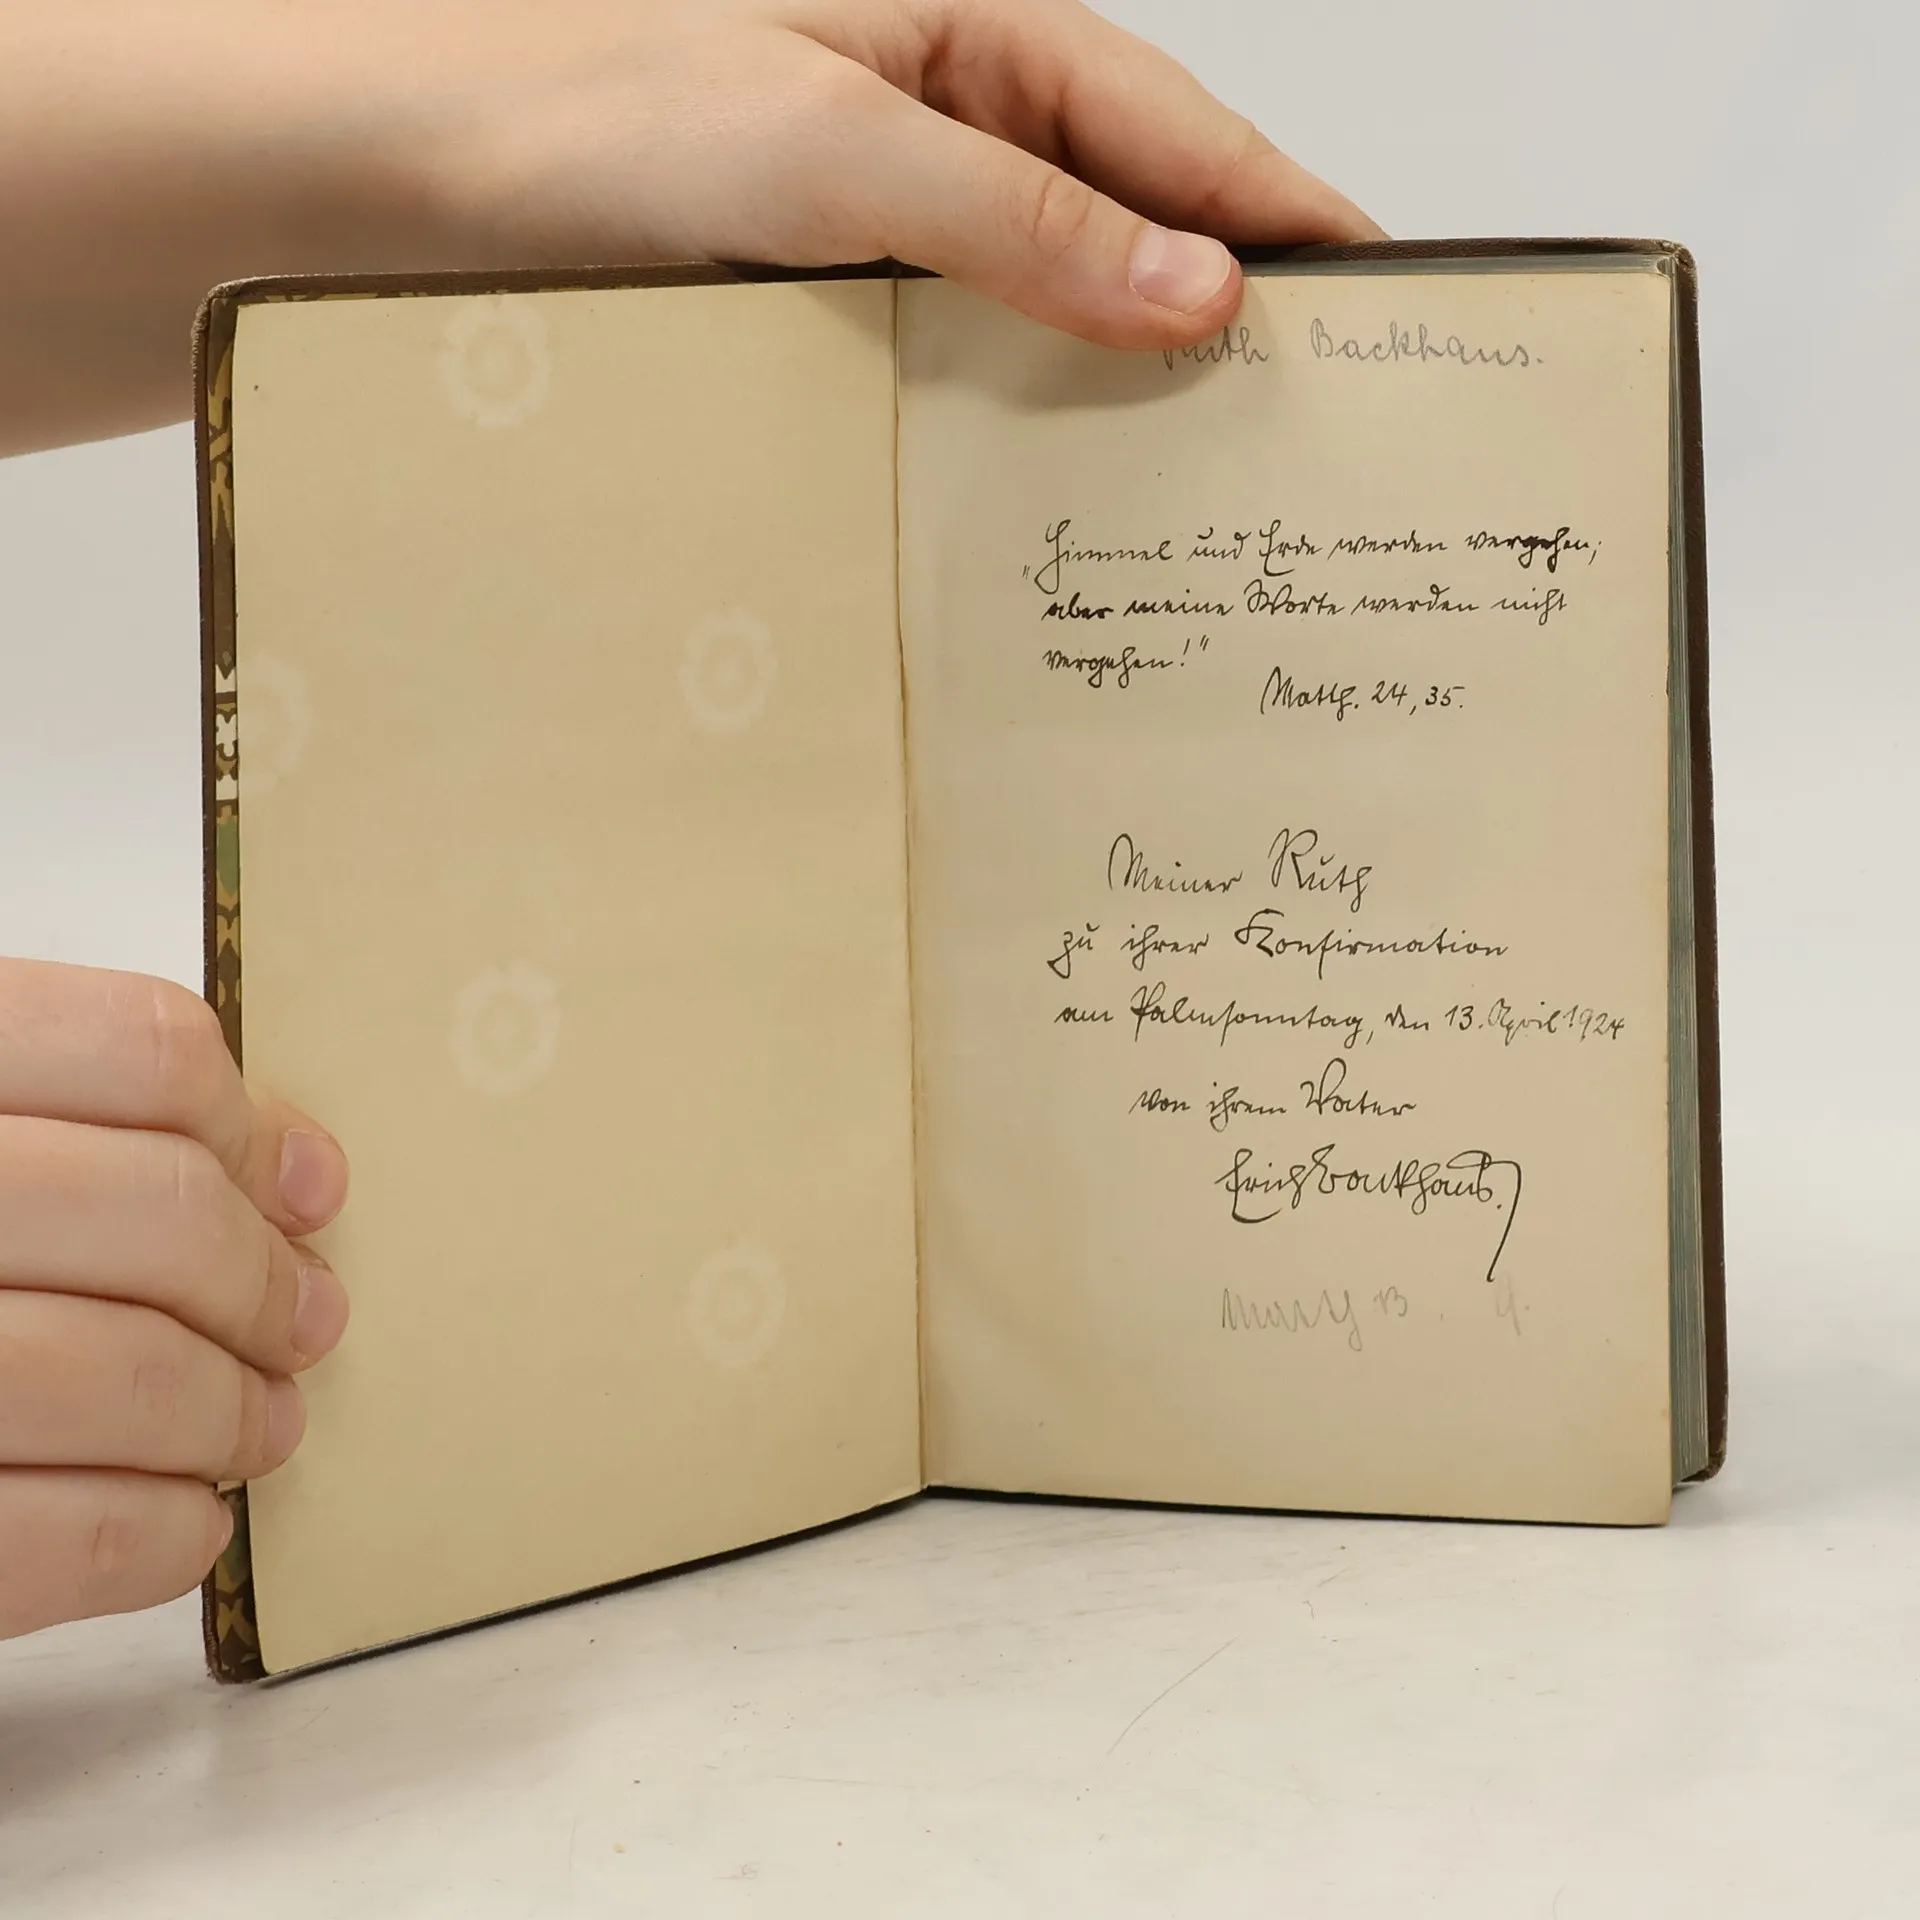 Ruth Backhaus.
„Himmel und Erde werden vergehen;
aber meine Worte werden nicht
vergehen!"
Matth. 24, 35.
Meiner Ruth
zu ihrer Konfirmation
am Palmsonntag, den 13. April 1924
von ihrem Vater
Erich Backhaus.